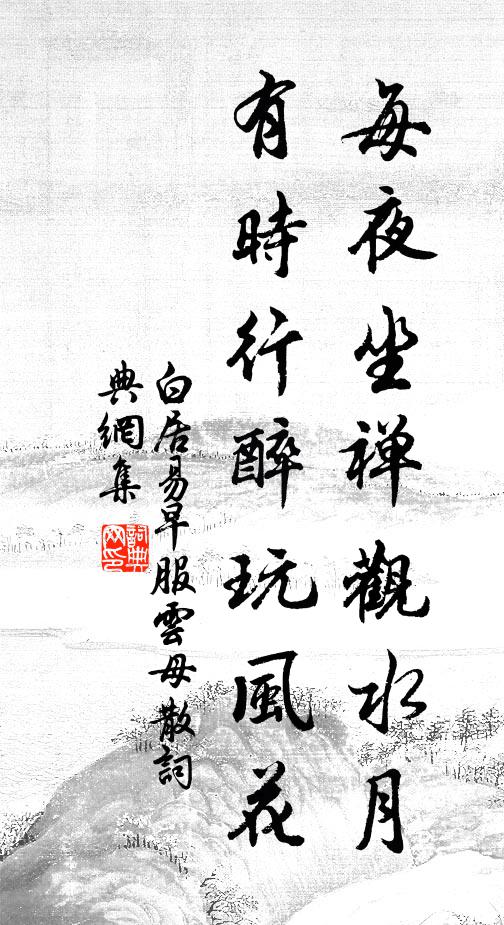 每夜坐禪觀水月
有時行醉玩風花
白居易早服雲母散詞
典網集
詞典
网印